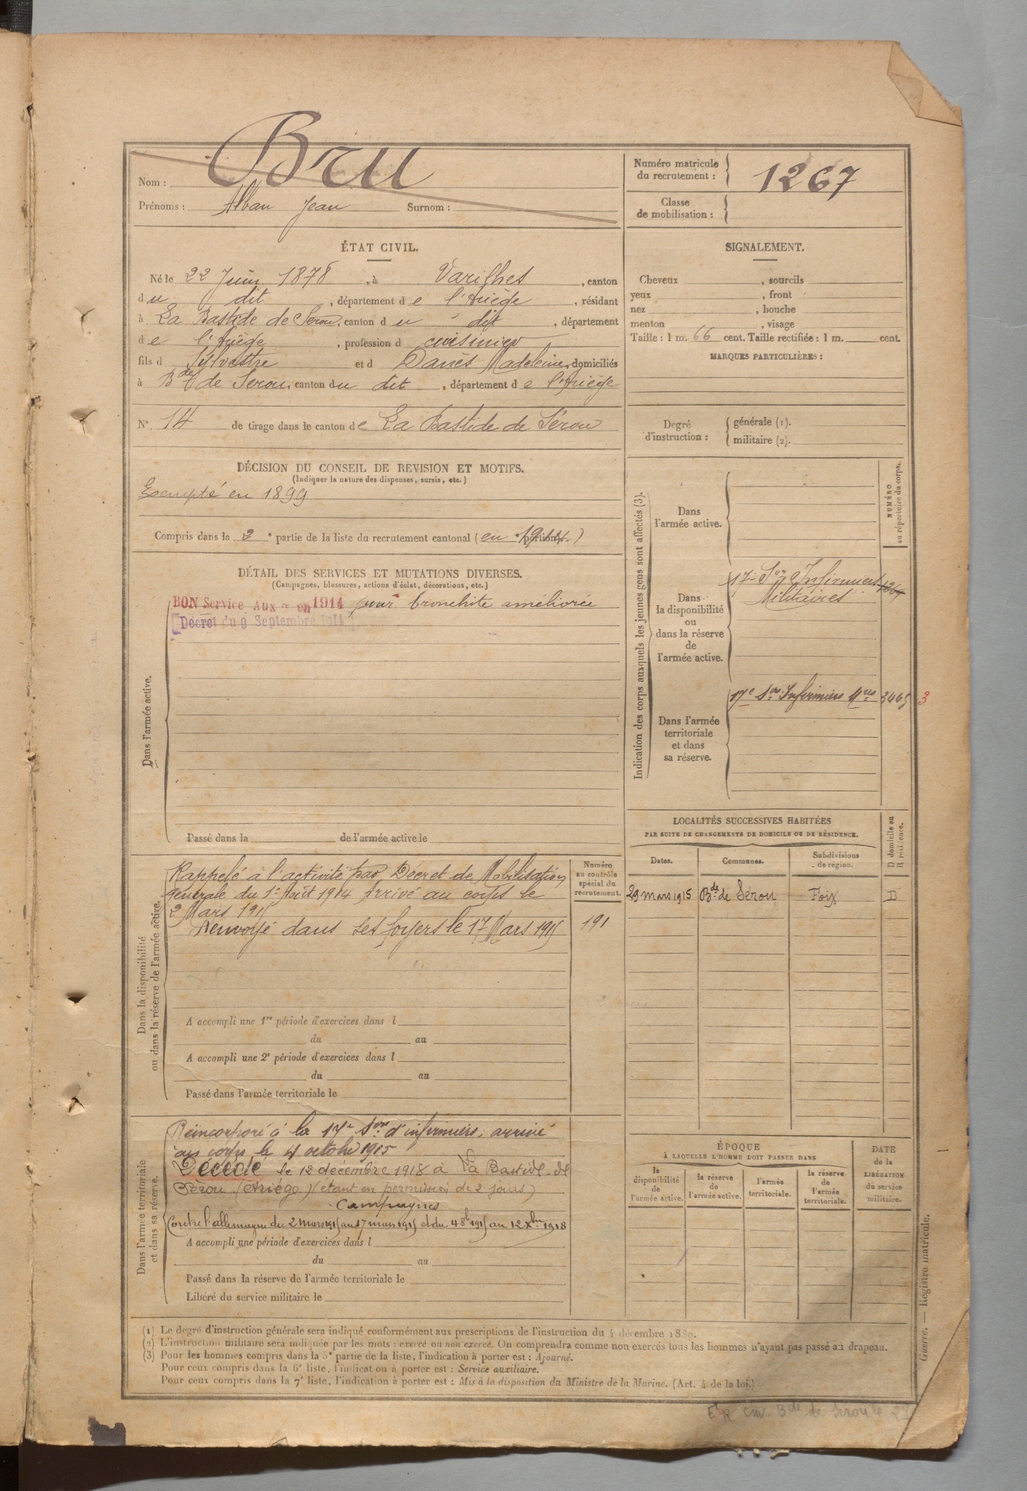 Nom : Bru
Prénoms : Alban Jean Surnom :
Numéro matricule
du recrutement : 1267
Classe
de mobilisation :
ÉTAT CIVIL.
Né le 22 Juin 1878, à Varilhes, canton
du dit, département de l'Ariège, résidant
à La Bastide de Serou, canton du dit, département
de l'Ariège, profession de cuisinier
fils d Sylvestre et d Danès Madeleine, domiciliés
à Bde de Serou, canton du dit, département de l'Ariège
N° 14 de tirage dans le canton de La Bastide de Sérou
SIGNALEMENT.
Cheveux , sourcils
yeux , front
nez , bouche
menton , visage
Taille : 1 m. 66 cent. Taille rectifiée : 1 m. cent.
MARQUES PARTICULIÈRES :
Degré
d'instruction :
générale (1).
militaire (2).
DÉCISION DU CONSEIL DE REVISION ET MOTIFS.
(Indiquer la nature des dispenses, sursis, etc.)
Exempté en 1899
Compris dans la 2e partie de la liste du recrutement cantonal (en 1914)
DÉTAIL DES SERVICES ET MUTATIONS DIVERSES.
(Campagnes, blessures, actions d'éclat, décorations, etc.)
Dans l'armée active.
BON Service Auxre en 1914 pour bronchite améliorée
Décret du 9 Septembre 1914
Passé dans la de l'armée active le
Indication des corps auxquels les jeunes gens sont affectés (3).
NUMÉRO
au répertoire du corps.
Dans
l'armée active.
Dans
la disponibilité
ou
dans la réserve
de
l'armée active.
17e Son d'Infirmiers
Militaires
Dans l'armée
territoriale
et dans
sa réserve.
17e Son Infirmiers Mres 3465 3
Dans la disponibilité
ou dans la réserve de l'armée active.
Rappelé à l'activité par Décret de Mobilisation
générale du 1er Août 1914 Arrivé au corps le
2 Mars 1915
Renvoyé dans ses foyers le 17 Mars 1915
Numéro
au contrôle
spécial du
recrutement.
191
A accompli une 1re période d'exercices dans l
du au
A accompli une 2e période d'exercices dans l
du au
Passé dans l'armée territoriale le
LOCALITÉS SUCCESSIVES HABITÉES
PAR SUITE DE CHANGEMENTS DE DOMICILE OU DE RÉSIDENCE.
Dates. Communes. Subdivisions
de région. D domicile ou
R résidence.
29 mars 1915 Bde de Sérou Foix D
Dans l'armée territoriale
et dans sa réserve.
Réincorporé à la 17e Son d'infirmiers, arrivé
au corps le 4 octobre 1915
Décédé le 12 décembre 1918 à La Bastide de
Sérou (Ariège) (étant en permission de 2 jours)
Campagnes
Contre l'allemagne du 2 mars 1915 au 17 mars 1915 et du 4 8bre 1915 au 12 Xbre 1918
A accompli une période d'exercices dans l
du au
Passé dans la réserve de l'armée territoriale le
Libéré du service militaire le
ÉPOQUE
À LAQUELLE L'HOMME DOIT PASSER DANS
la
disponibilité
de
l'armée active.
la réserve
de
l'armée active.
l'armée
territoriale.
la réserve
de
l'armée
territoriale.
DATE
de la
LIBÉRATION
du service
militaire.
(1) Le degré d'instruction générale sera indiqué conformément aux prescriptions de l'instruction du 4 décembre 1889.
(2) L'instruction militaire sera indiquée par les mots : exercé ou non exercé. On comprendra comme non exercés tous les hommes n'ayant pas passé au drapeau.
(3) Pour les hommes compris dans la 5e partie de la liste, l'indication à porter est : Ajourné.
Pour ceux compris dans la 6e liste, l'indication à porter est : Service auxiliaire.
Pour ceux compris dans la 7e liste, l'indication à porter est : Mis à la disposition du Ministre de la Marine. (Art. 4 de la loi.)
Guerre. — Registre matricule.